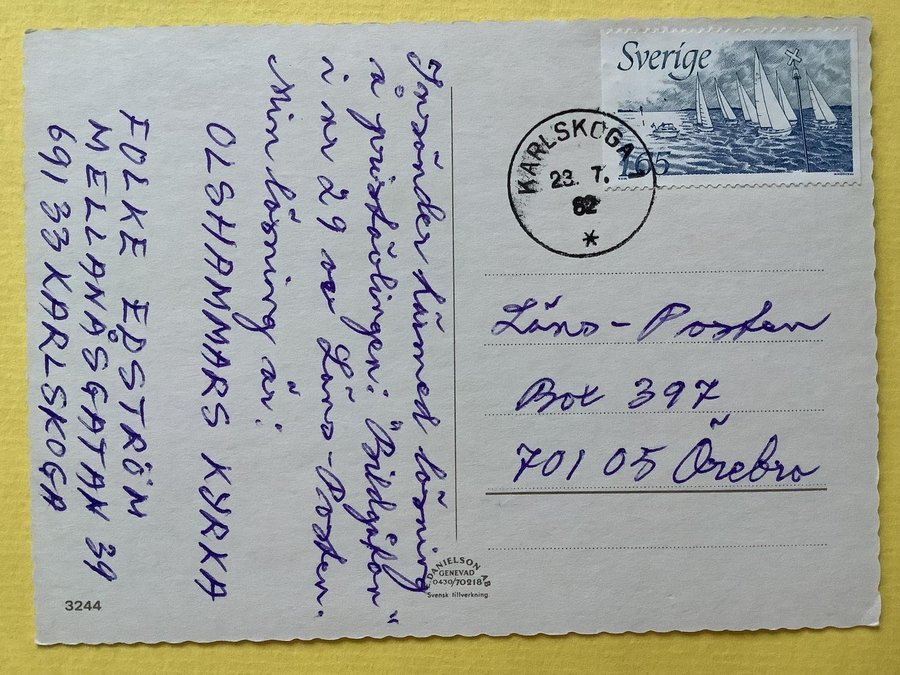 Insänder härmed lösning
å pristävlingen: "Bildgåtan"
i nr 29 av Läns-Posten.
Min lösning är:
OLSHAMMARS KYRKA
FOLKE EDSTRÖM
MELLANÅSGATAN 39
691 33 KARLSKOGA
Sverige
165
KARLSKOGA 1
23. 7.
82
*
Läns-Posten
Box 397
701 05 Örebro
DANIELSON AB
GENEVAD
0430/70218
Svensk tillverkning.
3244